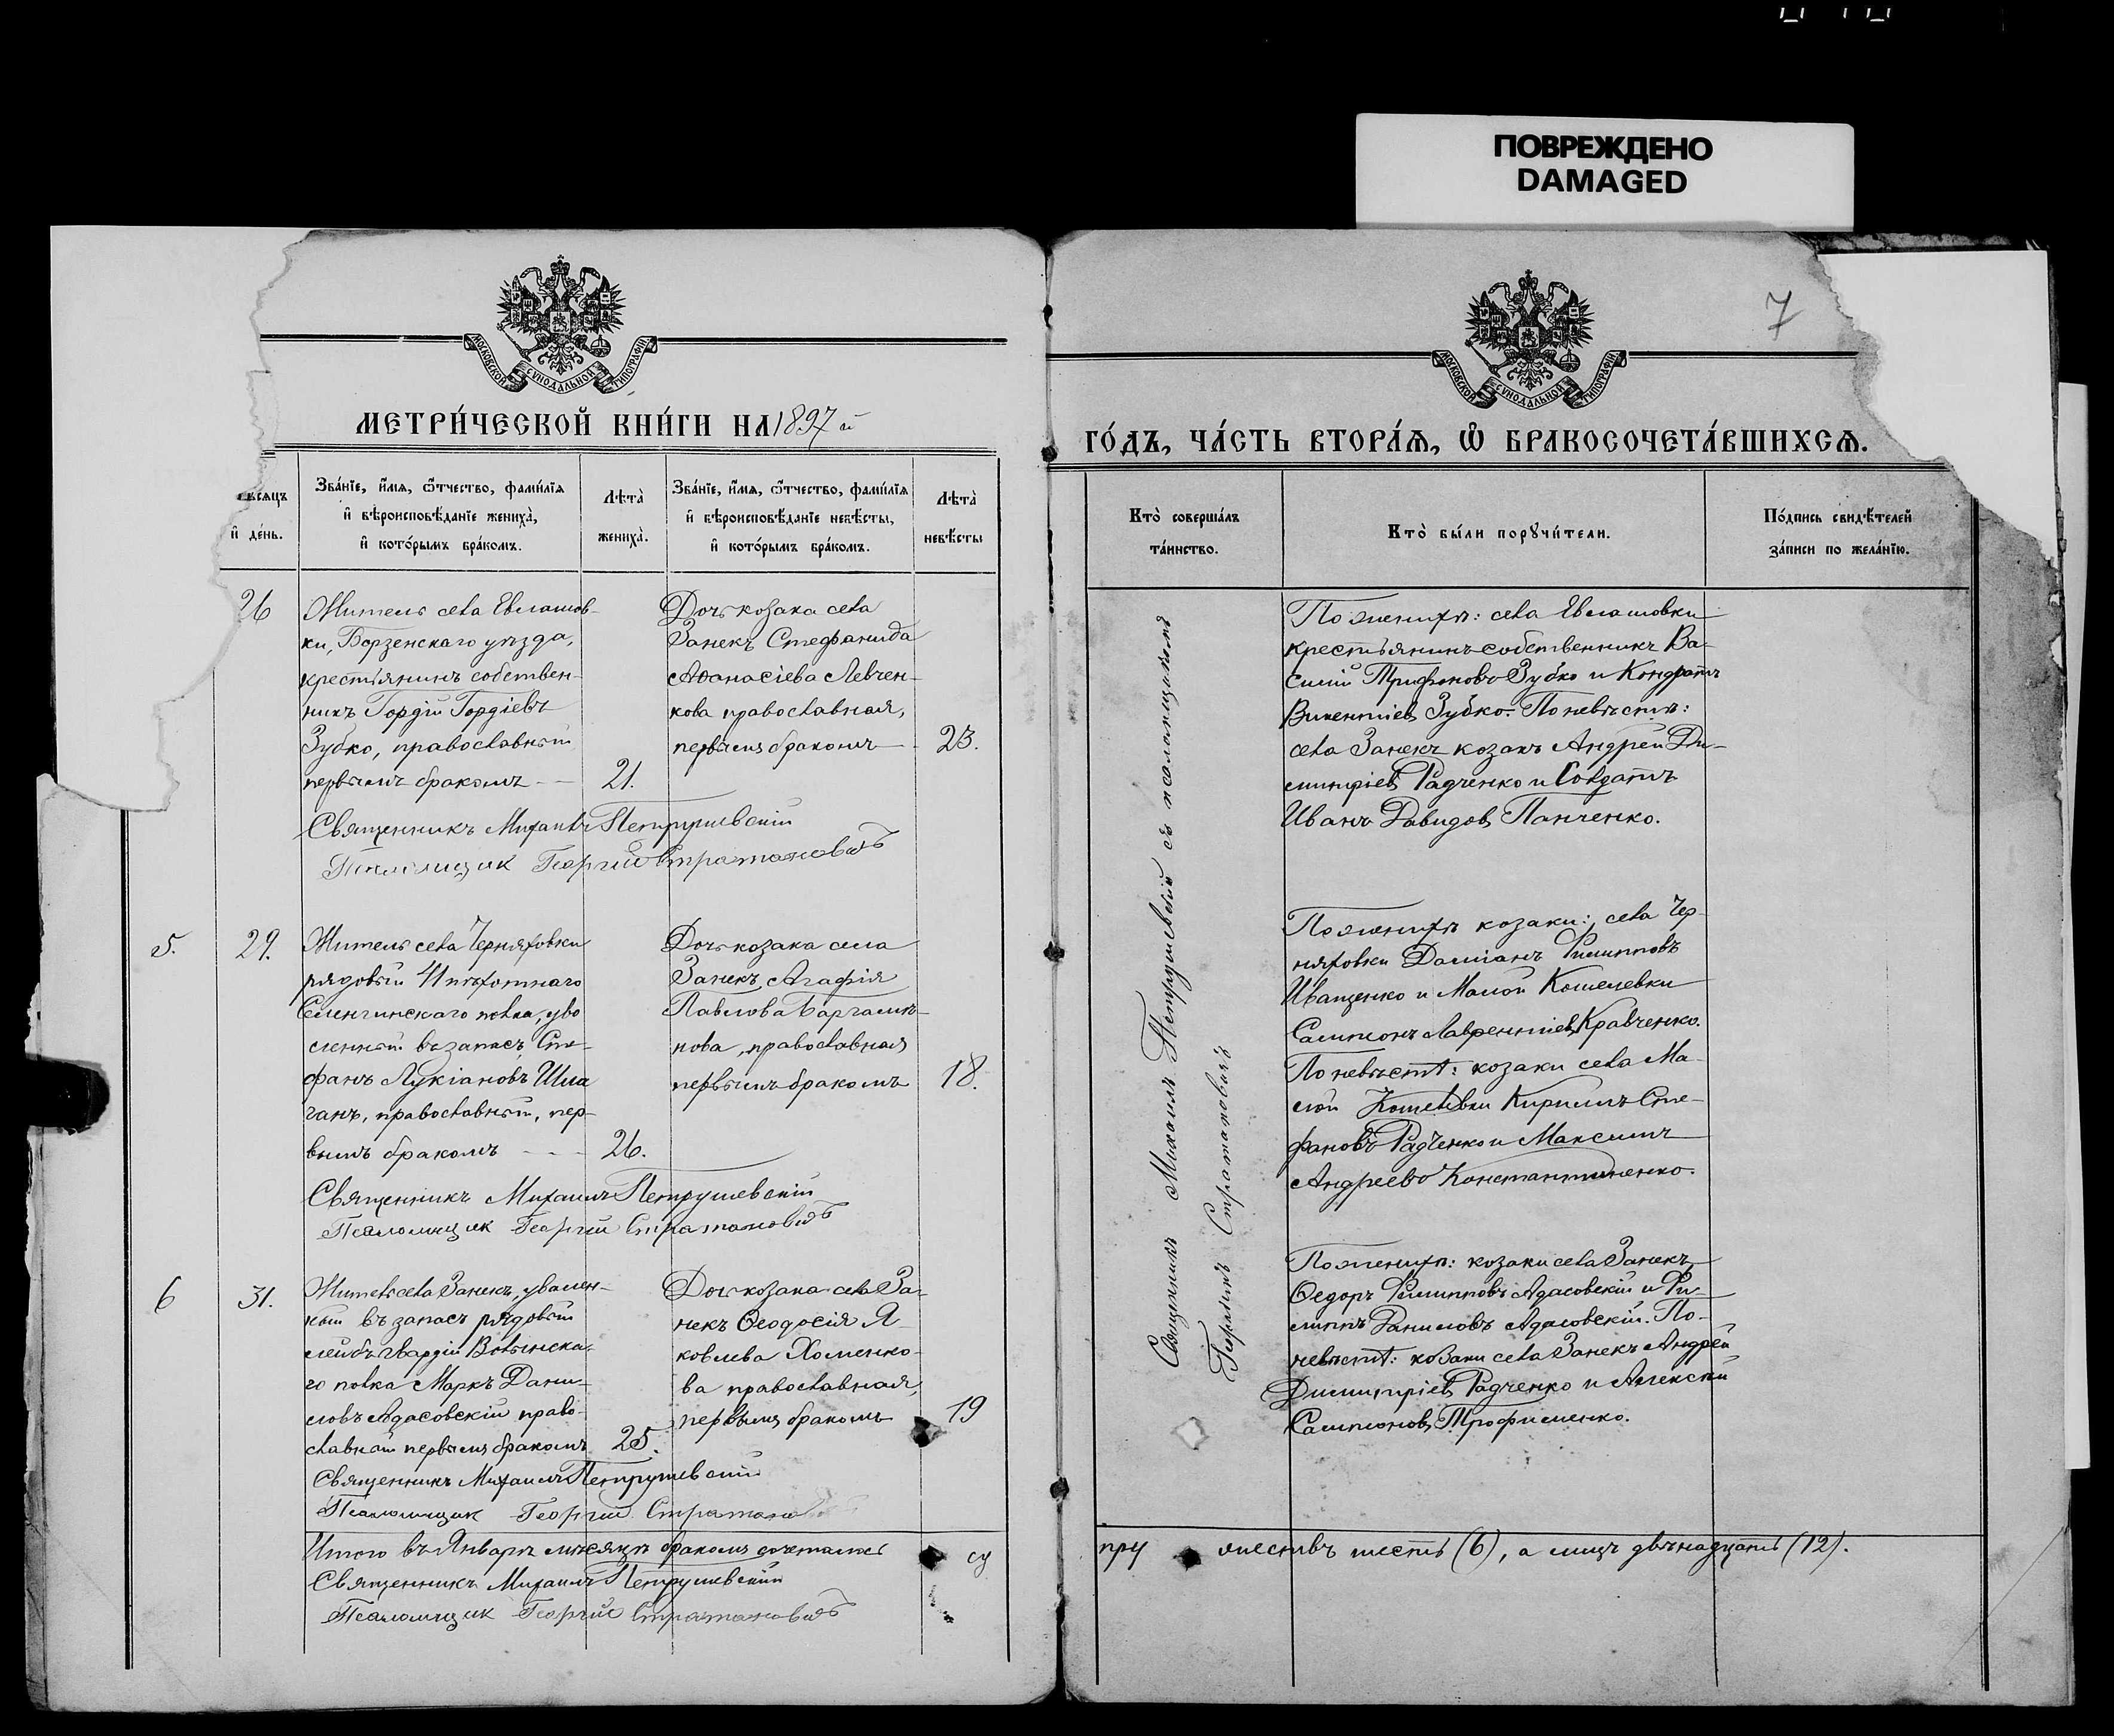 ПОВРЕЖДЕНО
DAMAGED
7
МОСКОВСКОЙ СѴНОДАЛЬНОЙ ТИПОГРАФІИ
МОСКОВСКОЙ СѴНОДАЛЬНОЙ ТИПОГРАФІИ
МЕТРИ́ЧЕСКОЙ КНИ́ГИ НА 1897 й
мѣсяцъ
и҆ де́нь.
Зва́нїе, и҆́мѧ, ѻ҆́тчество, фами́лїѧ
и҆ вѣроисповѣ́данїе жениха̀,
и҆ кото́рымъ бра́комъ.
Лѣта̀
жениха̀.
Зва́нїе, и҆́мѧ, ѻ҆́тчество, фами́лїѧ
и҆ вѣроисповѣ́данїе невѣ́сты,
и҆ кото́рымъ бра́комъ.
Лѣта̀
невѣ́сты
26
Житель села Евлашов-
ки, Борзенскаго уѣзда,
крестьянинъ собствен-
никъ Гордій Гордіевъ
Зубко, православный
первымъ бракомъ —
21.
Дочь козака села
Занекъ Стефанида
Аѳанасіева Левчен-
кова православная,
первымъ бракомъ —
23.
Священникъ Михаилъ Петрушевскій
Псаломщик Георгій Стратановичъ
5.
29.
Житель села Черняховки
рядовый 41 пѣхотнаго
Селенгинскаго полка, уво
ленный въ запасъ, Сте-
фанъ Лукіановъ Шма
ганъ, православный, пер-
вымъ бракомъ - - -
26.
Дочь козака села
Занекъ, Агафія
Павлова
нова, православная
первымъ бракомъ
18.
Священникъ Михаилъ Петрушевскій
Псаломщик Георгій Стратановичъ
6
31.
Житель села Занекъ, уволен-
ный въ запасъ рядовый
лейбъ гвардіи Волынска-
го полка Маркъ Дани-
ловъ Адасовскій право-
славный первымъ бракомъ
25.
Дочь козака села За-
некъ Ѳеодосія Я
ковлева Хоменко-
ва православная,
первымъ бракомъ
19
Священникъ Михаилъ Петрушевскій
Псаломщик Георгій Стратано
Итого въ Январѣ мѣсяцѣ бракомъ сочеталось
су
Священникъ Михаилъ Петрушевскій
Псаломщик Георгій Стратановичъ
ГО́ДЪ, ЧА́СТЬ ВТОРА́Ѧ, Ѽ БРАКОСОЧЕТА́ВШИХСѦ.
Кто̀ соверша́лъ
та́инство.
Кто̀ бы́ли порꙋчи́тели.
По́дпись свидѣ́телей
за́писи по жела́нїю.
Священникъ Михаилъ Петрушевскій съ псаломщикомъ
Георгіемъ Стратановичъ
По женихѣ: села Евлашовки
крестьянинъ собственникъ Ва-
силій Трифоновъ Зубко и Кондратъ
Викентіевъ Зубко. По невѣстѣ:
села Занекъ козакъ Андрей Ди-
митріевъ Радченко и Солдатъ
Иванъ Давидовъ Панченко.
По женихѣ козаки: села Чер-
няховки Даміанъ Филипповъ
Иващенко и Малой Кошелевки
Сампсонъ Лаврентіевъ Кравченко.
По невѣстѣ: козаки села Ма-
лой Кошелевки Кириллъ Сте-
фановъ Радченко и Максимъ
Андреевъ Константиненко.
По женихѣ: козаки села Занекъ,
Ѳедоръ Филипповъ Адасовскій и Фи-
липпъ Даниловъ Адасовскій. По-
невѣстѣ: козаки села Занекъ Андрей
Димитріевъ Радченко и Алексѣй
Сампсоновъ Трофименко.
пру жествъ шесть (6), а лицъ двѣнадцать (12).